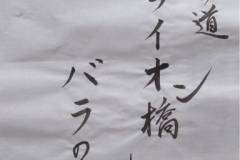 道
イオン橋
バラの